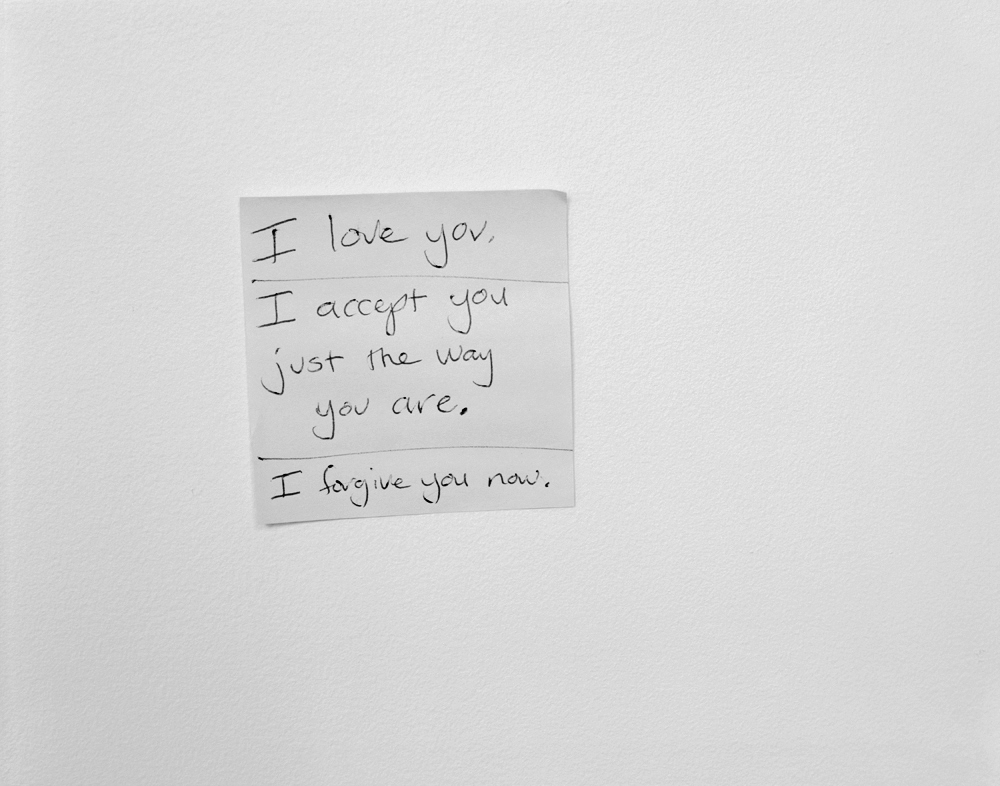 I love you.
I accept you
just the way
you are.
I forgive you now.